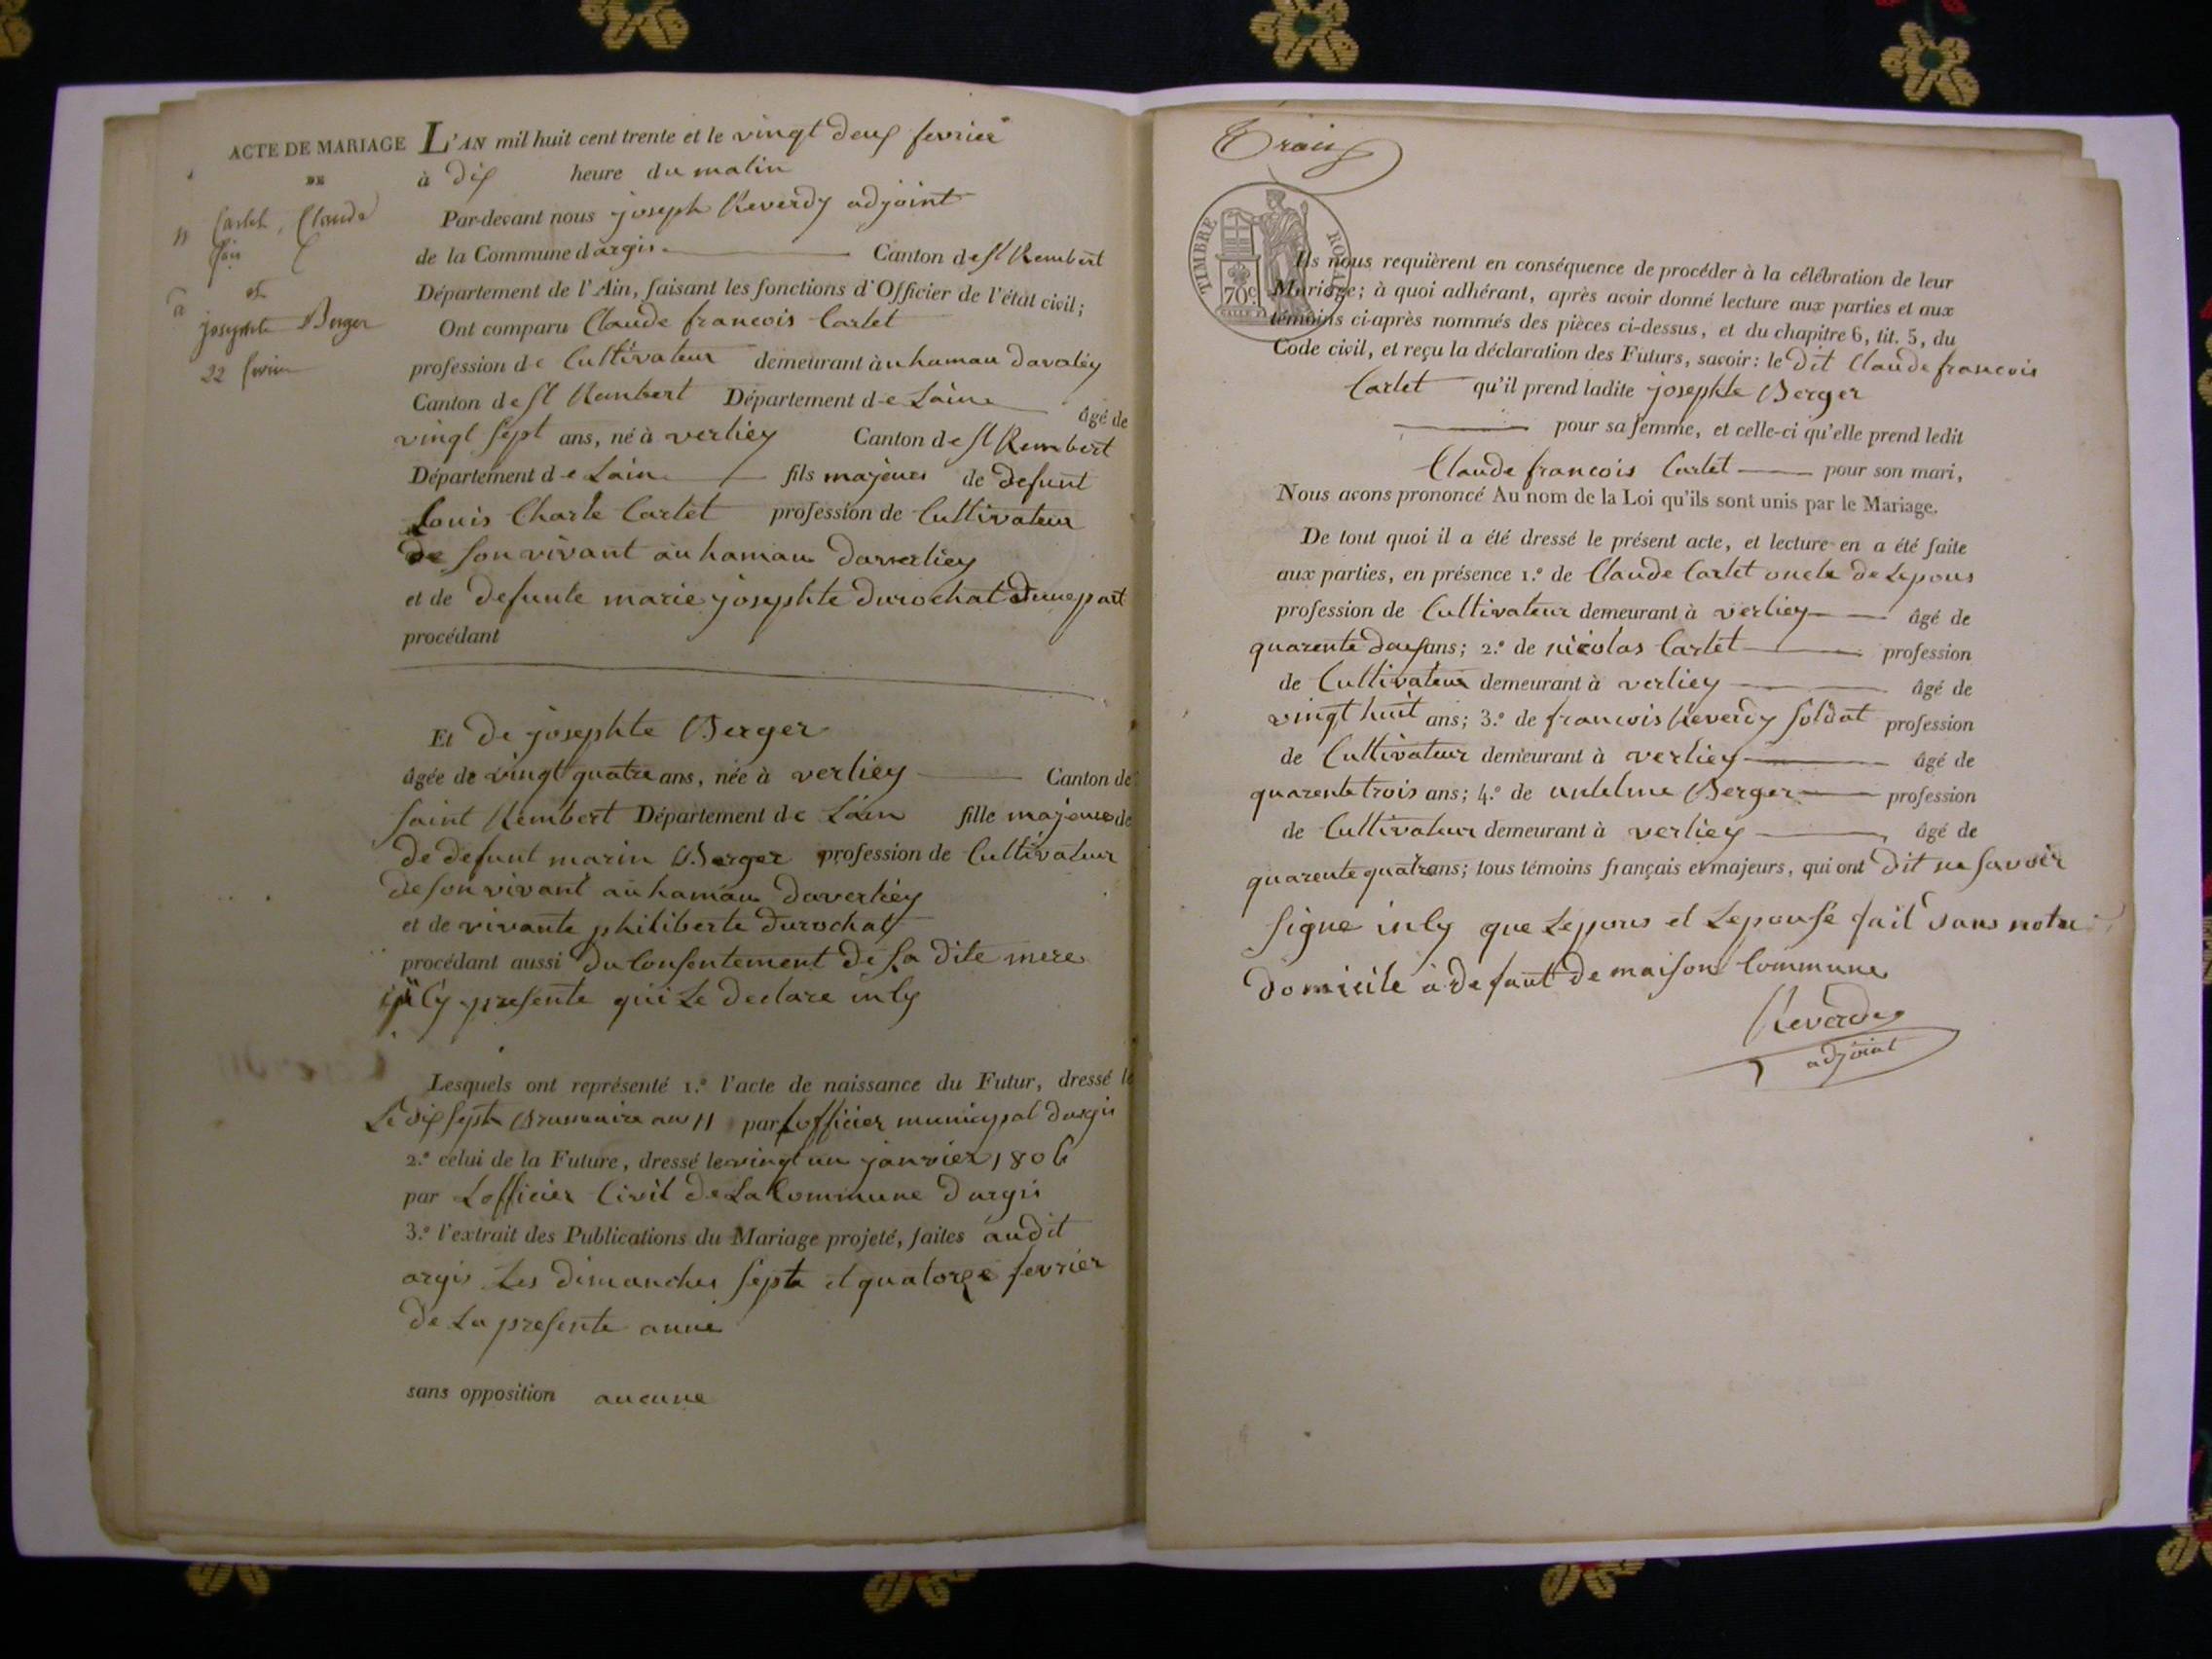 ACTE DE MARIAGE
DE
Cartet, Claude
et
josephte Berger
22 fevrier
L'AN mil huit cent trente et le vingt deux fevrier
à dix heure du matin
Par-devant nous joseph Reverdy adjoint
de la Commune dargis Canton de st Rembert
Département de l'Ain, faisant les fonctions d'Officier de l'état civil;
Ont comparu Claude francois Cartet
profession de Cultivateur demeurant àu hamau davaliey
Canton de st Rambert Département de Lain âgé de
vingt sept ans, né à verliey Canton de st Rembert
Département de Lain fils majeur de defunt
Louis Charle Cartet profession de Cultivateur
de son vivant au hamau daverliey
et de defunte marie josephte durochat dune part
procédant
Et de josephte Berger
âgée de vingt quatre ans, née à verliey Canton de
saint Rembert Département de Lain fille majeure de
de defunt marin Berger profession de Cultivateur
de son vivant au hamau daverliey
et de vivante philiberte durochat
procédant aussi du Consentement de sa dite mere
icy presente qui Le declare icy
Lesquels ont représenté 1.º l'acte de naissance du Futur, dressé le
Le dix sept Brumaire an 11 par Lofficier municipal dargis
2.º celui de la Future, dressé le vingt un janvier 1806
par Lofficier Civil de La Commune dargis
3.º l'extrait des Publications du Mariage projeté, faites audit
argis Les dimanches sept et quatorze fevrier
de La presente anne
sans opposition aucune
Trois
TIMBRE ROYAL
70 c
Ils nous requièrent en conséquence de procéder à la célébration de leur
Mariage; à quoi adhérant, après avoir donné lecture aux parties et aux
témoins ci-après nommés des pièces ci-dessus, et du chapitre 6, tit. 5, du
Code civil, et reçu la déclaration des Futurs, savoir: le dit Claude francois
Cartet qu'il prend ladite josephte Berger
pour sa femme, et celle-ci qu'elle prend ledit
Claude francois Cartet pour son mari,
Nous avons prononcé Au nom de la Loi qu'ils sont unis par le Mariage.
De tout quoi il a été dressé le présent acte, et lecture en a été faite
aux parties, en présence 1.º de Claude Cartet oncle de Lepous
profession de Cultivateur demeurant à verliey âgé de
quarente deux ans; 2.º de nicolas Cartet profession
de Cultivateur demeurant à verliey âgé de
vingt huit ans; 3.º de francois Reverdy soldat profession
de Cultivateur demeurant à verliey âgé de
quarente trois ans; 4.º de antelme Berger profession
de Cultivateur demeurant à verliey âgé de
quarente quatre ans; tous témoins français et majeurs, qui ont dit ne savoir
signe que Lepous et Lepouse fait dans notre
domicile a defaut de maison Commune
Reverdy
adjoint